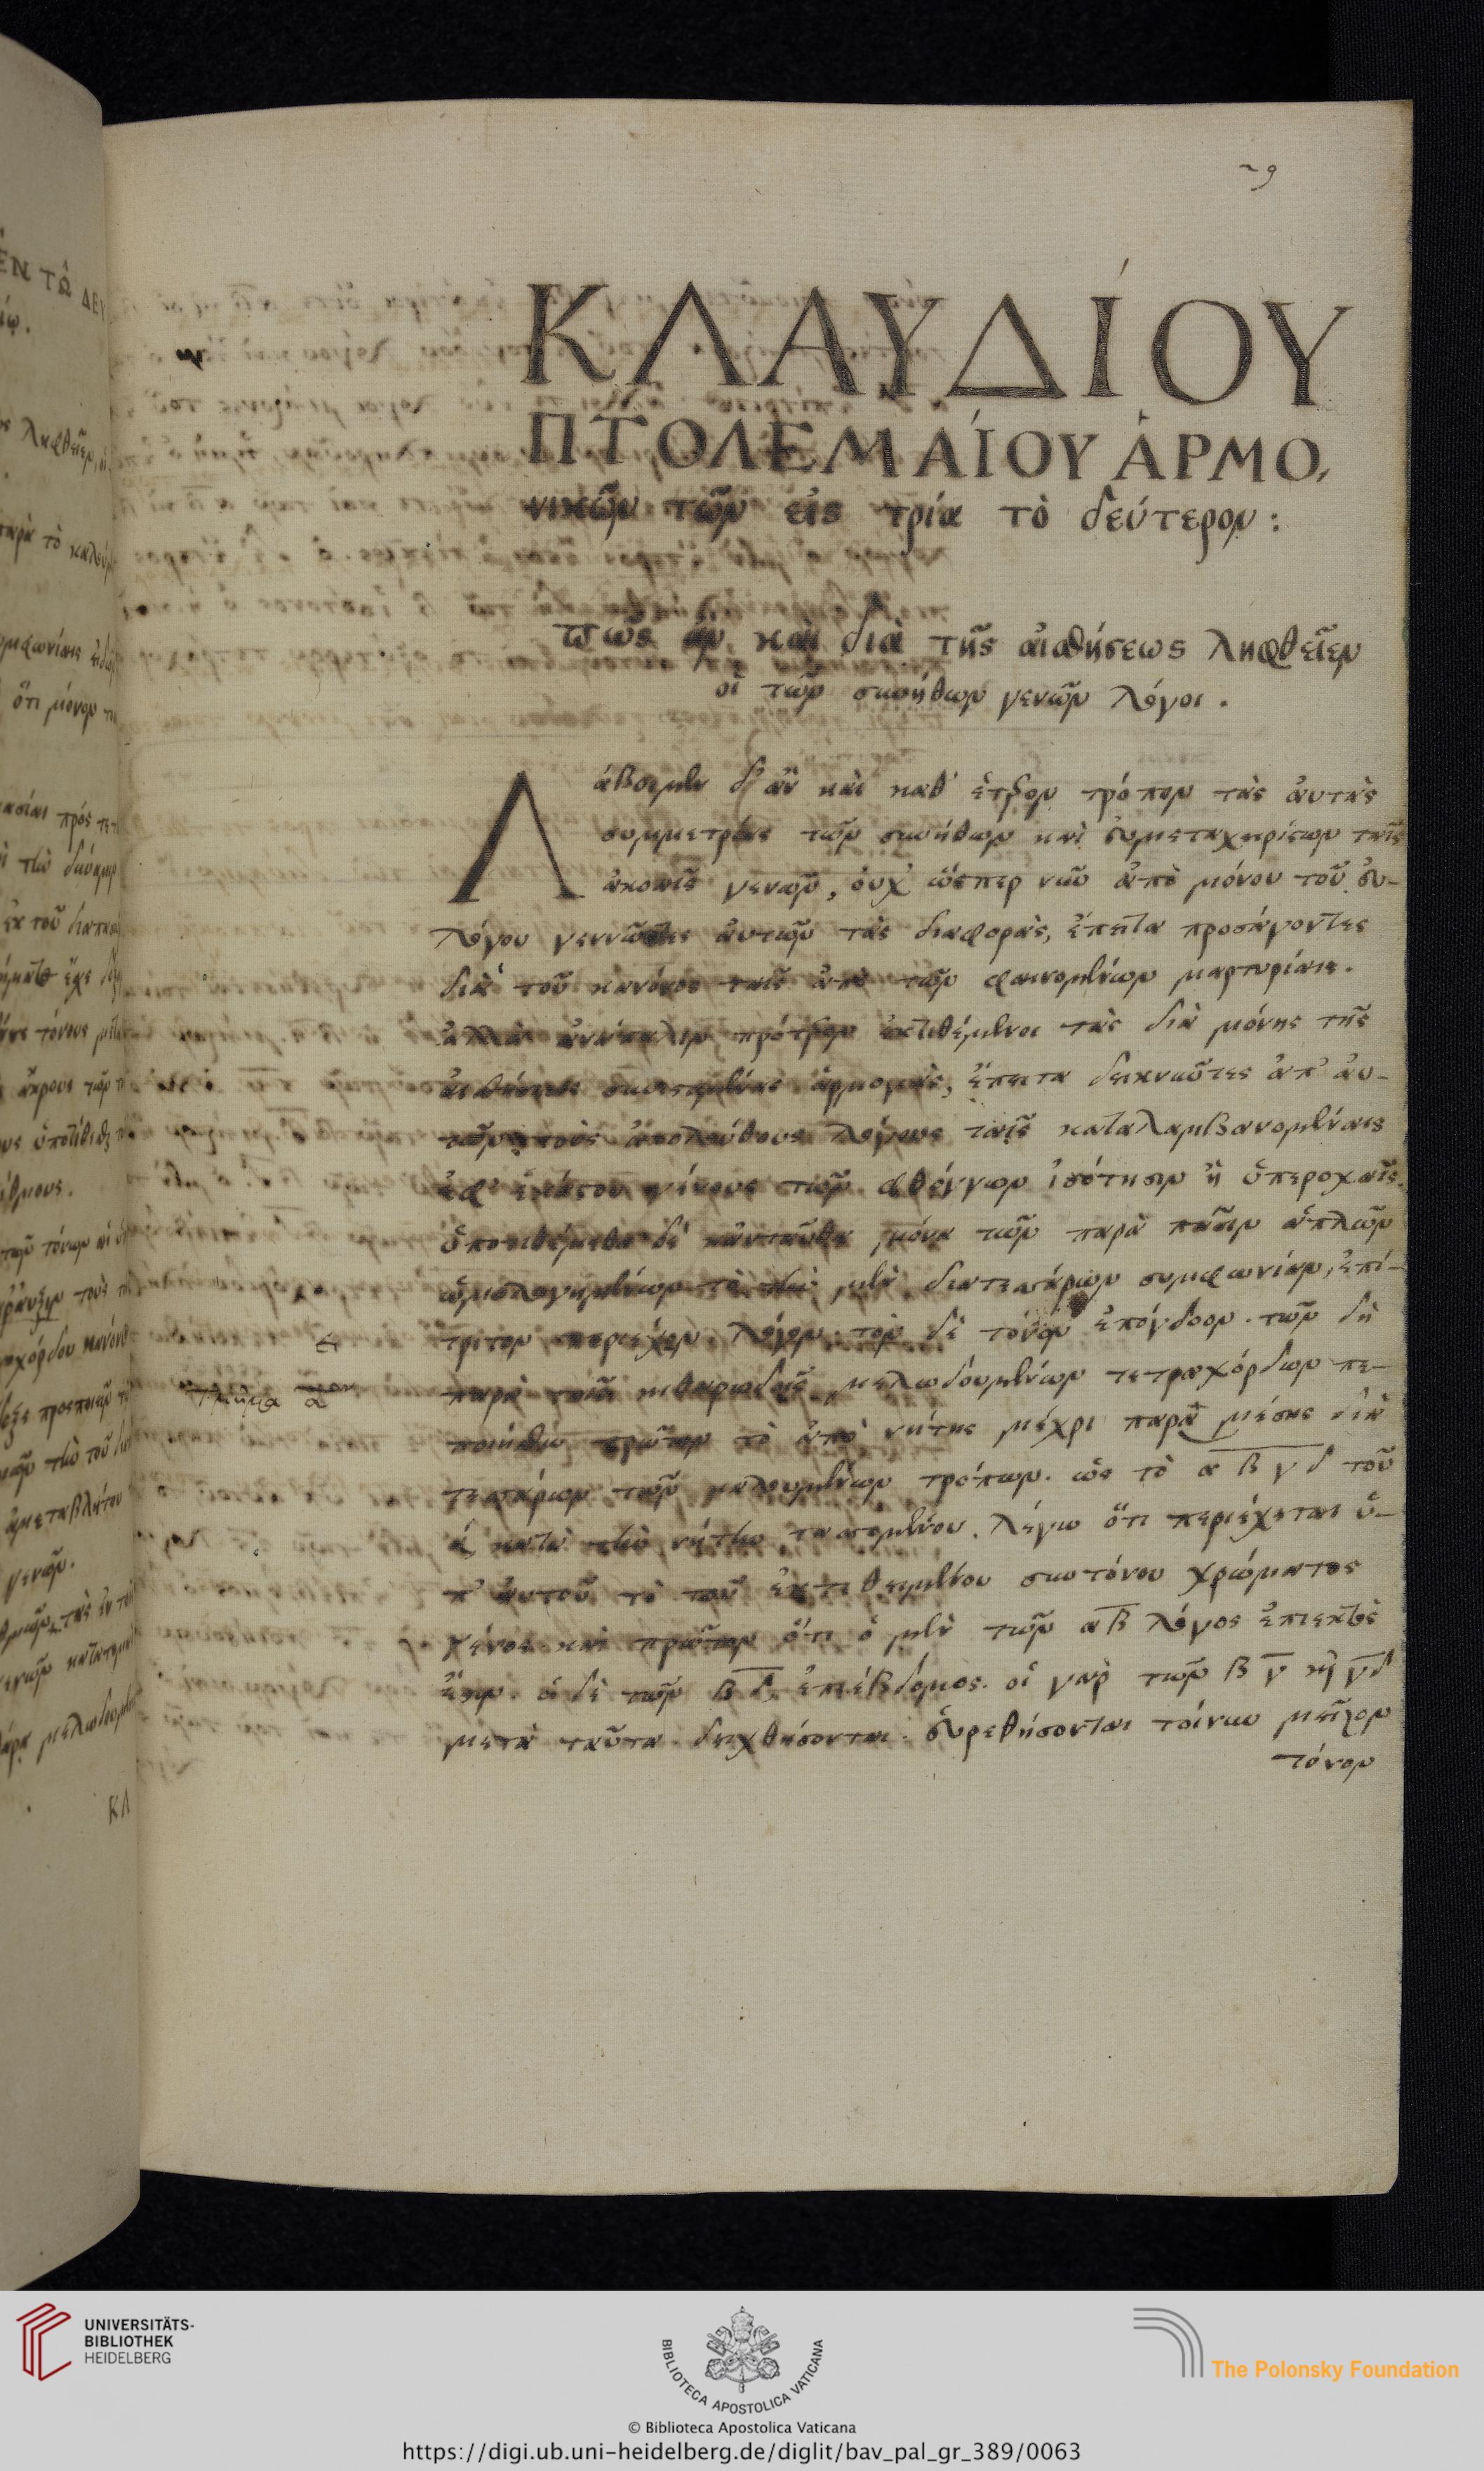 29
ΚΛΑΥΔΊΟΥ
ΠΤΟΛΕΜΑΊΟΥ ἉΡΜΟ,
νικῶν τῶν εἰς τρία τὸ δεύτερον:
πῶς ἂν καὶ διὰ τῆς αἰσθήσεως ληφθεῖεν
οἱ τῶν συνήθων γενῶν λόγοι.
Λάβοιμεν δ' ἂν καὶ καθ' ἕτερον τρόπον τὰς ἀυτὰς
συμμετρίας τῶν συνήθων καὶ ἐυμεταχειρίστων ταῖς
ἀκοαῖς γενῶν, ὀυχ ὥσπερ νῦν ἀπὸ μόνου τοῦ ἐυ-
λόγου γεννῶντες ἀυτῶν τὰς διαφορὰς, ἔπειτα προσάγοντες
διὰ τοῦ κανόνος ταῖς ἀπὸ τῶν φαινομένων μαρτυρίαις.
ἀλλὰ ἀνάπαλιν πρότερον ἐκτιθέμενοι τὰς διὰ μόνης τῆς
αἰσθήσεως συνισταμένας ἁρμογὰς, ἔπειτα δεικνύντες ἀπ' ἀυ-
τῶν τοὺς ἀκολούθους λόγους ταῖς καταλαμβανομέναις
ἐφ' ἑκάστου γένους τῶν φθόγγων ἰσότησιν ἢ ὑπεροχαῖς.
ὑποτιθέμεθα δὲ κἀνταῦθα μόνα τῶν παρὰ πᾶσιν ἁπλῶν
ὡμολογημένων τὸ τὴν μὲν διατεσσάρων συμφωνίαν, ἐπί-
τριτον περιέχειν λόγον τὸν δὲ τόνον ἐπόγδοον. τῶν δὴ
παρὰ τοῖς κιθαρωδοῖς μελωδουμένων τετραχόρδων πε-
ποιήσθω πρῶτον τὸ ἀπὸ νήτης μέχρι παρὰ μέσης διὰ
τεσσάρων τῶν καλουμένων τρόπων. ὡς τὸ αβγδ τοῦ
ά κατὰ τὴν νήτην τασσομένου. λέγω ὅτι περιέχεται ὑ-
π' ἀυτοῦ τὸ τοῦ ἐκτεθειμένου συντόνου χρώματος
γένος καὶ πρῶτον ὅτι ὁ μὲν τῶν αβ λόγος ἐπιεκτός
ἔστιν. ὁ δὲ τῶν βδ ἐπιέβδομος. οἱ γὰρ τῶν βγ κὴ γδ
μετὰ ταῦτα δειχθήσονται. ἐυρεθήσονται τοίνυν μεῖζον
τόνον
UNIVERSITÄTS-
BIBLIOTHEK
HEIDELBERG
BIBLIOTECA APOSTOLICA VATICANA
© Biblioteca Apostolica Vaticana
The Polonsky Foundation
https://digi.ub.uni-heidelberg.de/diglit/bav_pal_gr_389/0063